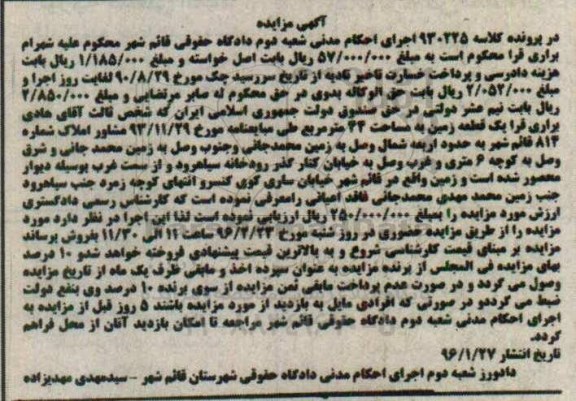 آگهی مزایده
در پرونده کلاسه ۹۳۰۲۲۵ اجرای احکام مدنی شعبه دوم دادگاه حقوقی قائم شهر محکوم علیه شهرام
براری قرا محکوم است به مبلغ ۵۷/۰۰۰/۰۰۰ ریال بابت اصل خواسته و مبلغ ۱/۱۸۵/۰۰۰ ریال بابت
هزینه دادرسی و پرداخت خسارت تاخیر تادیه از تاریخ سررسید چک مورخ ۹۰/۸/۲۹ لغایت روز اجرا و
مبلغ ۲/۰۵۲/۰۰۰ ریال بابت حق الوکاله بدوی در حق محکوم له صابر مرتضایی و مبلغ ۲/۸۵۰/۰۰۰
ریال بابت نیم عشر دولتی در حق صندوق دولت جمهوری اسلامی ایران که شخص ثالث آقای هادی
براری قرا یک قطعه زمین به مساحت ۲۴ مترمربع طی مبایعنامه مورخ ۹۳/۱۱/۲۹ مشاور املاک شماره
۸۱۴ قائم شهر به حدود اربعه شمال وصل به زمین محمدجانی وجنوب وصل به زمین محمد جانی و شرق
وصل به کوچه ۶ متری و غرب وصل به خیابان کنار گذر رودخانه سیاهرود و از سمت غرب بوسیله دیوار
محصور شده است و زمین واقع در قائم شهر خیابان ساری کوی کنسرو انتهای کوچه زمرد جنب سیاهرود
جنب زمین محمد مهدی محمدجانی فاقد اعیانی رامعرفی نموده است که کارشناس رسمی دادگستری
ارزش مورد مزایده را بمبلغ ۲۵۰/۰۰۰/۰۰۰ ریال ارزیابی نموده است لذا این اجرا در نظر دارد مورد
مزایده را از طریق مزایده حضوری در روز شنبه مورخ ۹۶/۲/۲۳ ساعت ۱۱ الی ۱۱/۳۰ بفروش برساند
مزایده بر مبنای قیمت کارشناسی شروع و به بالاترین قیمت پیشنهادی فروخته خواهد شدو ۱۰ درصد
بهای مزایده فی المجلس از برنده مزایده به عنوان سپرده اخذ و مابقی ظرف یک ماه از تاریخ مزایده
وصول می گردد و در صورت عدم پرداخت مابقی ثمن مزایده از سوی برنده ۱۰ درصد وی بنفع دولت
ضبط می گرددو در صورتی که افرادی مایل به بازدید از مورد مزایده باشند ۵ روز قبل از مزایده به
اجرای احکام مدنی شعبه دوم دادگاه حقوقی قائم شهر مراجعه تا امکان بازدید آنان از محل فراهم
گردد.
تاریخ انتشار ۹۶/۱/۲۷
دادورز شعبه دوم اجرای احکام مدنی دادگاه حقوقی شهرستان قائم شهر - سیدمهدی مهدیزاده